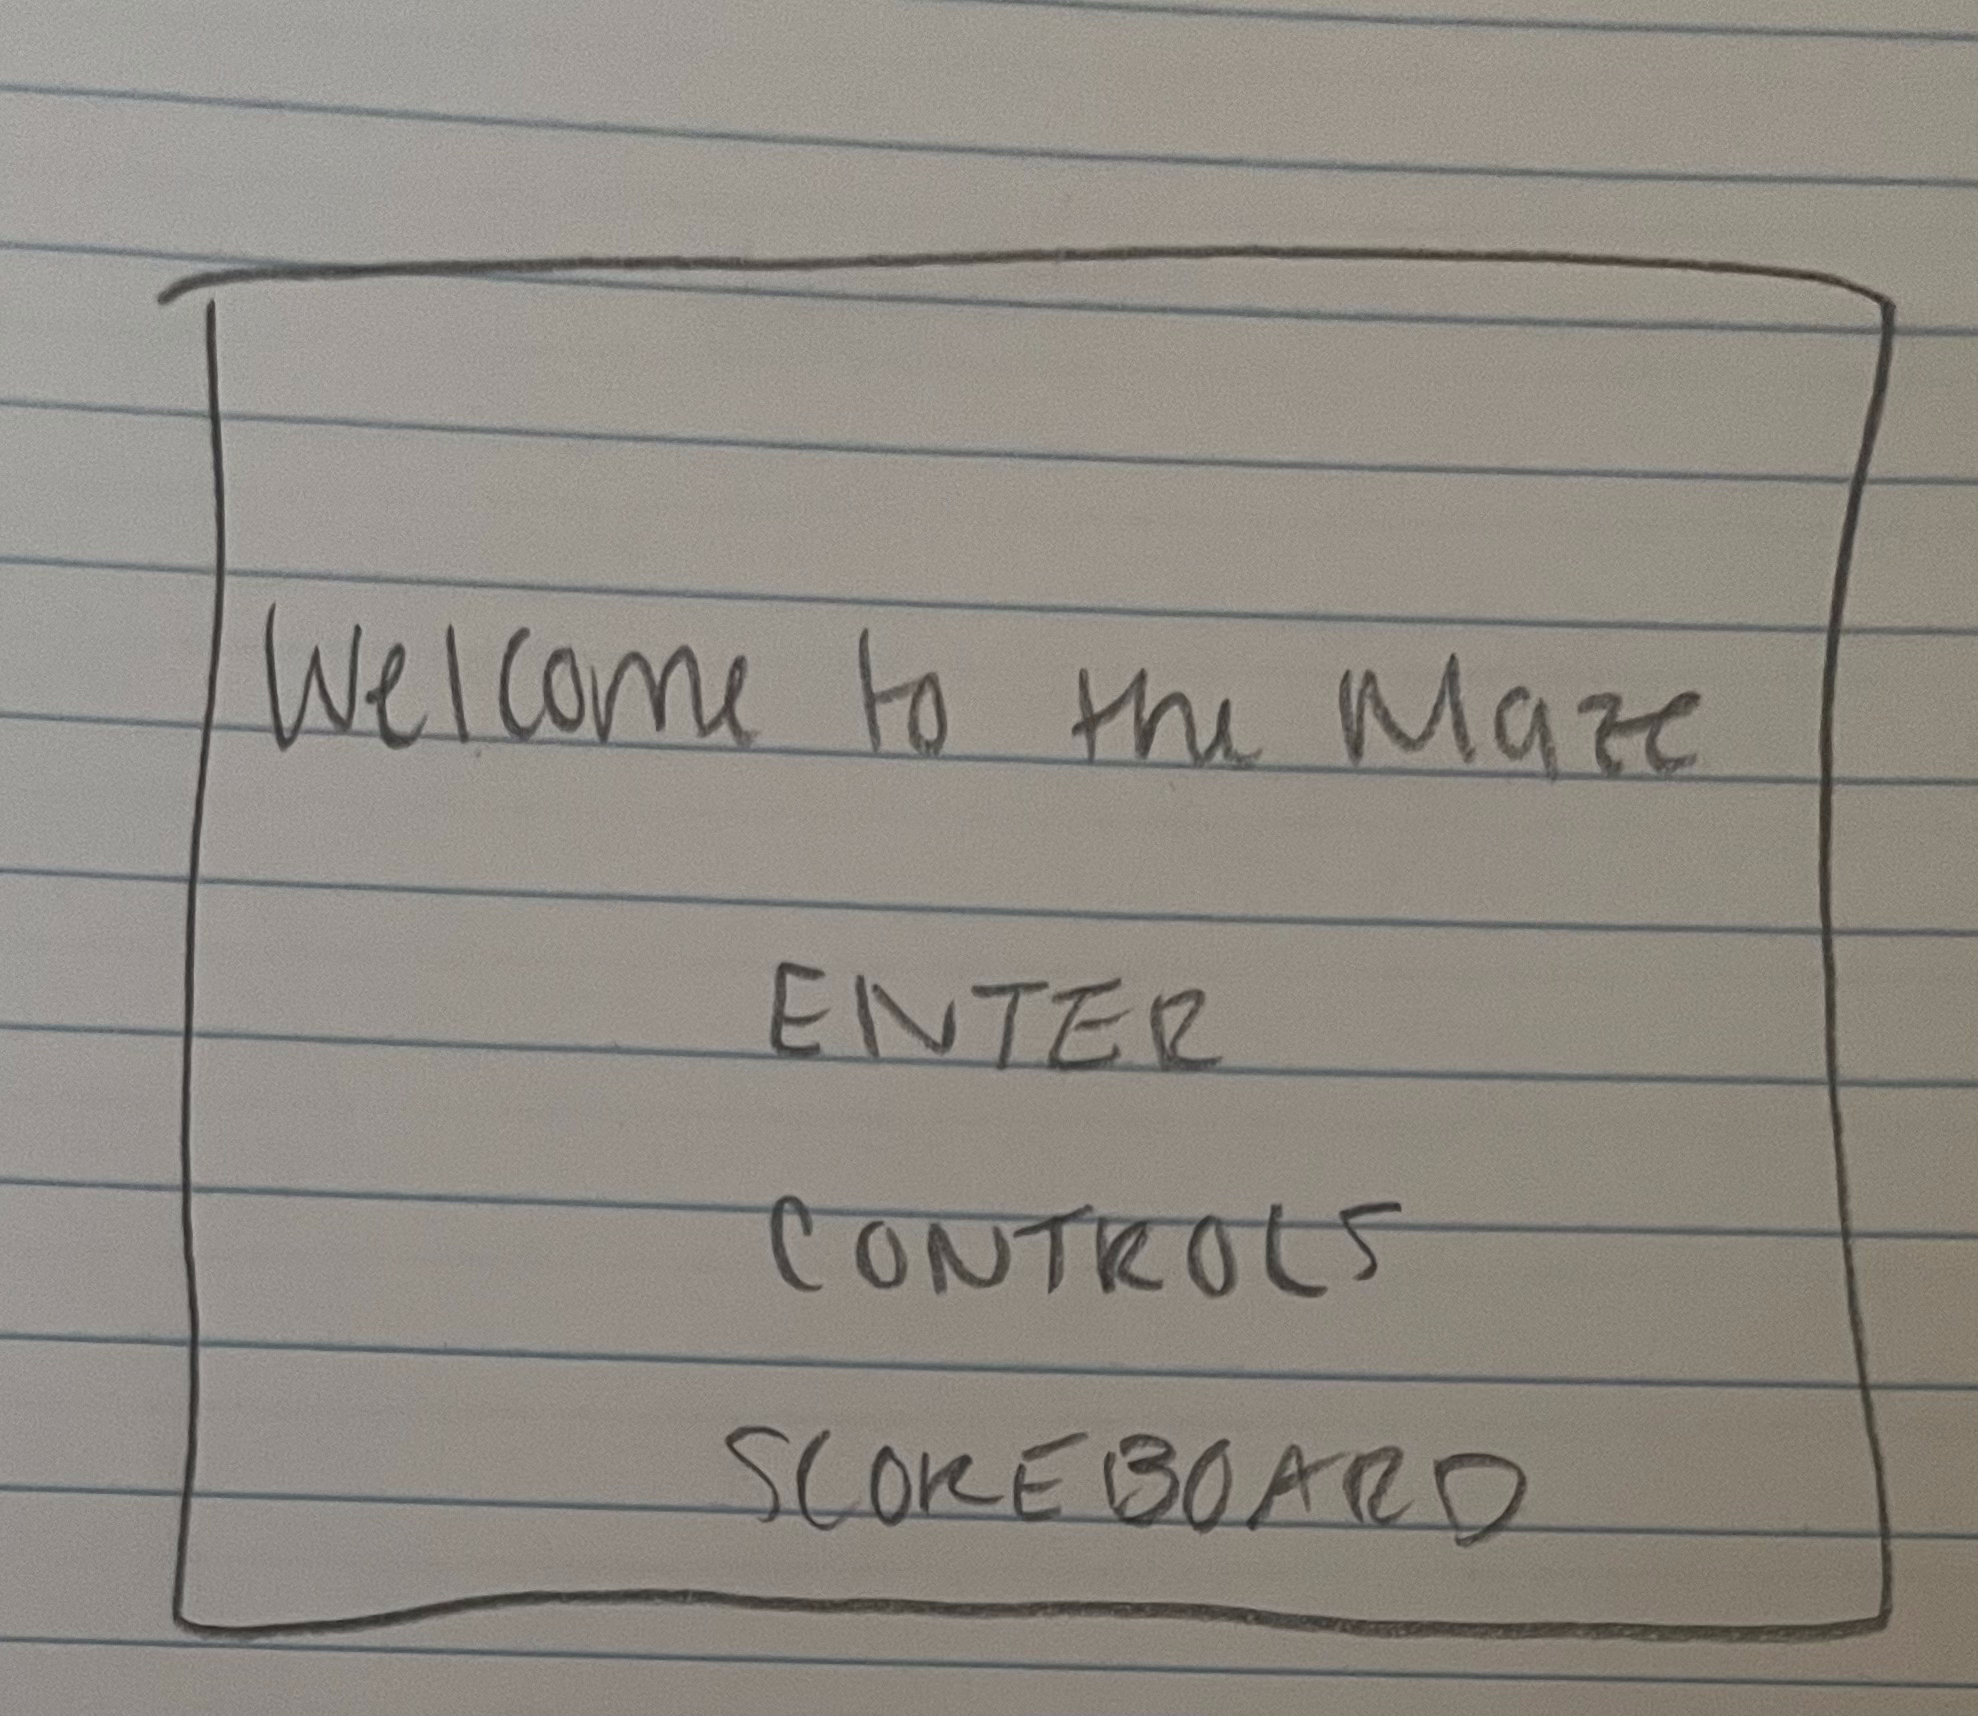 Welcome to the Maze
ENTER
CONTROLS
SCOREBOARD